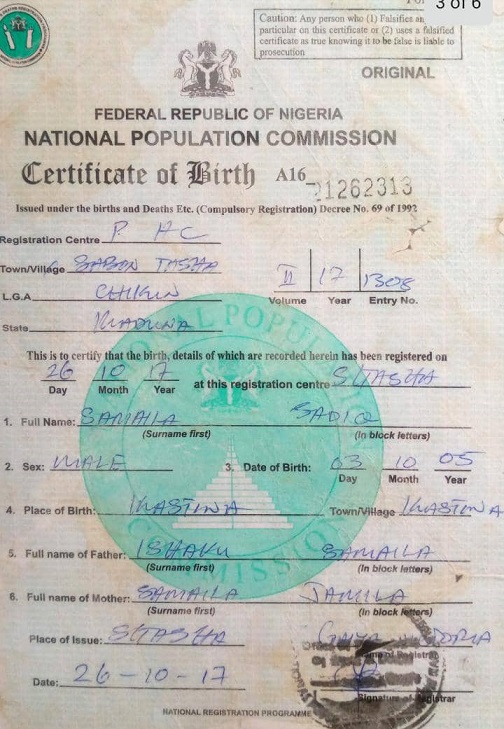 3 of 6
Caution: Any person who (1) Falsifies an
particular on this certificate or (2) uses a falsified
certificate as true knowing it to be false is liable to
prosecution
ORIGINAL
FEDERAL REPUBLIC OF NIGERIA
NATIONAL POPULATION COMMISSION
Certificate of Birth A16 21262313
Issued under the births and Deaths Etc. (Compulsory Registration) Decree No. 69 of 1992
Registration Centre P HC
Town/Village SABON TASHA
L.G.A CHIKUN
State KADUNA
II 17 1308
Volume Year Entry No.
This is to certify that the birth, details of which are recorded herein has been registered on
26 10 17 at this registration centre S/TASHA
Day Month Year
1. Full Name: SAMAILA SADIQ
(Surname first) (In block letters)
2. Sex: MALE 3. Date of Birth: 03 10 05
Day Month Year
4. Place of Birth: KASTINA Town/Village KASTINA
5. Full name of Father: ISHAKU SAMAILA
(Surname first) (In block letters)
6. Full name of Mother: SAMAILA JAMILA
(Surname first) (In block letters)
Place of Issue: S/TASHA
Name of Registrar
Date: 26-10-17
Signature of Registrar
NATIONAL REGISTRATION PROGRAMME